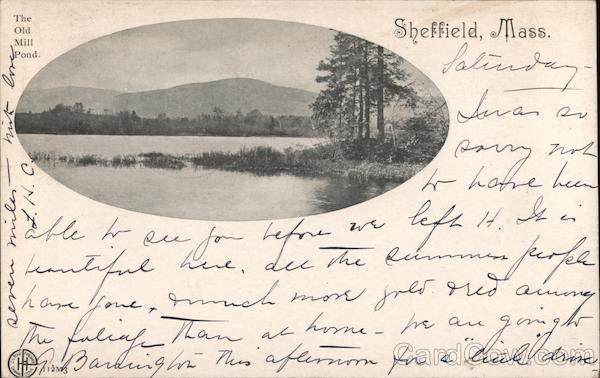 The
Old
Mill
Pond.
Sheffield, Mass.
Saturday -
I was so
sorry not
to have been
able to see you before we left H. It is
beautiful here. all the summer people
have gone, & much more gold & red among
the foliage than at home - we are going to
G. Barrington this afternoon for a "little" drive
seven miles - with love
L. H. C.
112M3
CardCow.com